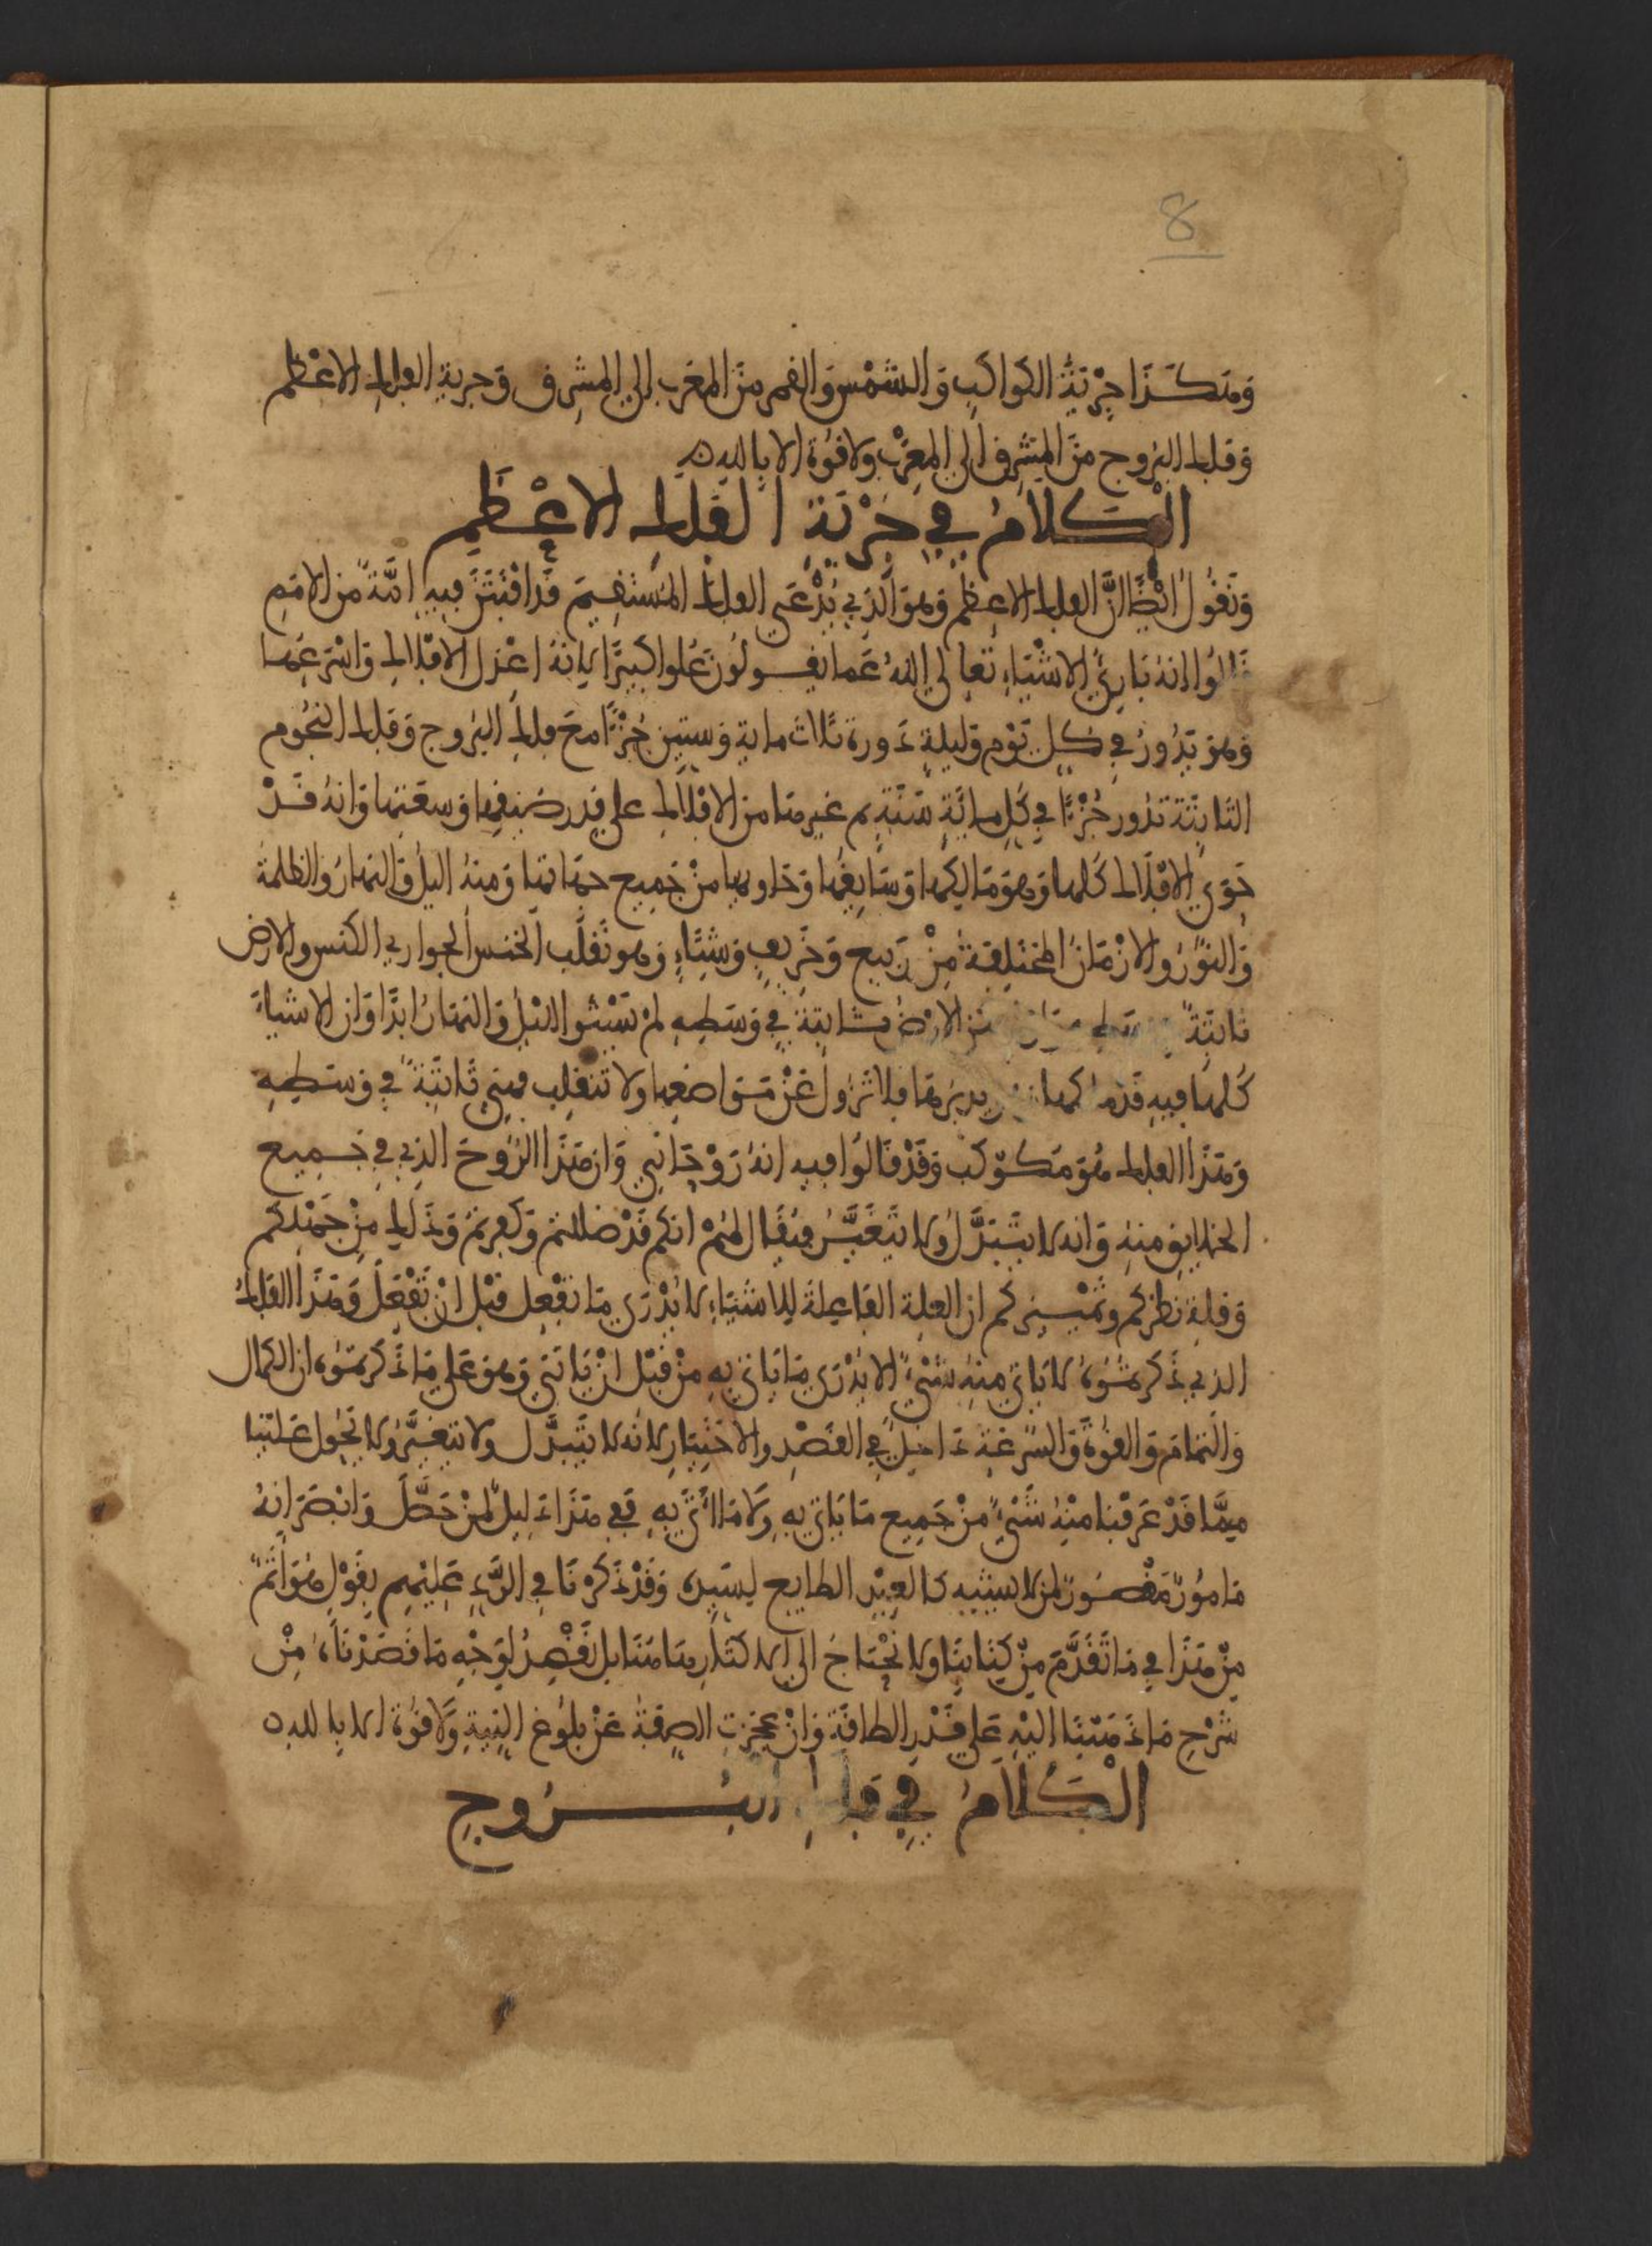 8
وَهَكَذَا جِرْيَةُ الكَواكِبِ وَالشَّمْسِ وَالقمر مِنَ المَغرب الى المشرِق وَجرية الفلك الاعْظم
وَفلك البُروج مِنَ المَشرِق الى المَغرْب ولا قوَة الا بالله
الْكَلَامُ فِي جِرْيَةِ الفَلَكِ الاعْظَمِ
وَنَقُولُ ايْضًا انَّ الفلك الاعظم وَهوَ الّذِي يُدْعَى الفلك المُسْتَقِيمَ قَد افْتَتَنَ فِيهِ امَّةٌ من الامَمِ
قَالُوا انهُ بَارِئُ الاشْيَاءِ تَعالى اللهُ عَما يقولُونَ عُلوا كبيرًا لانهُ اعْزل الافْلاك وَاسْرَعهَا
وَهوَ يَدُورُ فِي كل يَوْم وَليلةٍ دَورة ثلاث ماية وَستِين جُزْءًا مَعَ فلكِ البُروج وَفلك النجُوم
الثابِتَة تدُور جُزْءًا فِي كُلِ مِائَةِ سَنَةٍ ثم غيرهَا من الافْلاك على قدر ضيقها وَسعَتهَا وَانهُ قَدْ
حَوَى الافْلَاك كُلهَا وَهوَ مَالِكهَا وَسَايِقُهَا وَحَاويهَا مِنْ جَمِيع جهَاتهَا وَمِنهُ اليلُ وَالنهَارُ وَالظلمَة
وَالنوُرُ وَالازْمَانُ المختَلِفَة مِنْ رَبيع وَخَرِيفٍ وَشتَاءٍ وَهو يُقَلّب الخنس الجَوارِي الكنس والارض
ثابتَةٌ الارْضُ ثابتة فِي وَسَطِهِ لمْ يَسْتَو الليْلُ وَالنهَارُ ابَدًا وَان الاشياءَ
كُلهَا فيهِ فلا تَزول عَنْ مَوَاضعِهَا ولا تنقلِب فهيَ ثابتَة في وَسَطِهِ
وَهَذَا الفلك هُوَ مَكَوكَب وَقَدْ قَالُوا فيهِ انهُ رَوْحَانِي وَان هَذَا الرُوحَ الذِي فِي جَمِيع
الخلايق مِنهُ وَانه لا يتَبَدَّلُ ولا يَتغَيَّرُ فيُقَال لهُمْ انكم قَدْ ضللتمْ وَكفرتمْ وَذَلك مِنْ جَهْلكم
وَقلةِ نظركم وَتمْييزكم ان العلة الفَاعِلةَ للاشيَاءِ لا يُدْرَى مَا تفْعل قبْل انْ تَفْعَلَ وَهَذَا الفَلكُ
الذِي ذَكرتمُوهُ لا يَاتي مِنهُ شيْءٌ الا يُدْرَى مَا يَاتي بهِ مِنْ قَبْل انْ يَاتيَ وَهوَ عَلى مَا ذَكرتموهُ ان الكمال
وَالتمَامَ وَالقوَةَ وَالسرعَة دَاخِلٌ فِي القَصْدِ والاختِيَارِ لانه لا يَتبَدَّل ولا يتغيَّرُ ولا يَحُول عَلينا
مِمَّا قَدْ عَرَفْنا مِنْهُ شَيْءٌ مِنْ جَمِيع مَا يَاتي بهِ وَلَا مَا اتَى بِهِ فَفي هَذَا دَليلٌ لمنْ حَصَّلَ وَابْصَرَ انهُ
مَامُورٌ مَقْصُورٌ لمن لا يشبه كالعبد الطايع لسيدهِ وَقَدْ ذَكرْنَا فِي الرَّدِّ عَليْهِم بقَوْلٍ هُوَ اتَمُّ
مِنْ هَذَا فِي مَا تَقَدَّمَ مِنْ كِتَابِنَا ولا نحْتاجُ الى الاكثَارِ هَا هُنَا بل نقْصِدُ لوَجْهِ مَا قَصَدْنَاهُ مِنْ
شَرْحِ مَا ذَهَبْنَا اليْهِ عَلى قَدْرِ الطاقَةِ وَانْ عجَزتِ الصِفة عَنْ بلُوغ النِيةِ وَلا قُوَة الا بالله
الْكَلَامُ فِي فَلَكِ البُرُوجِ